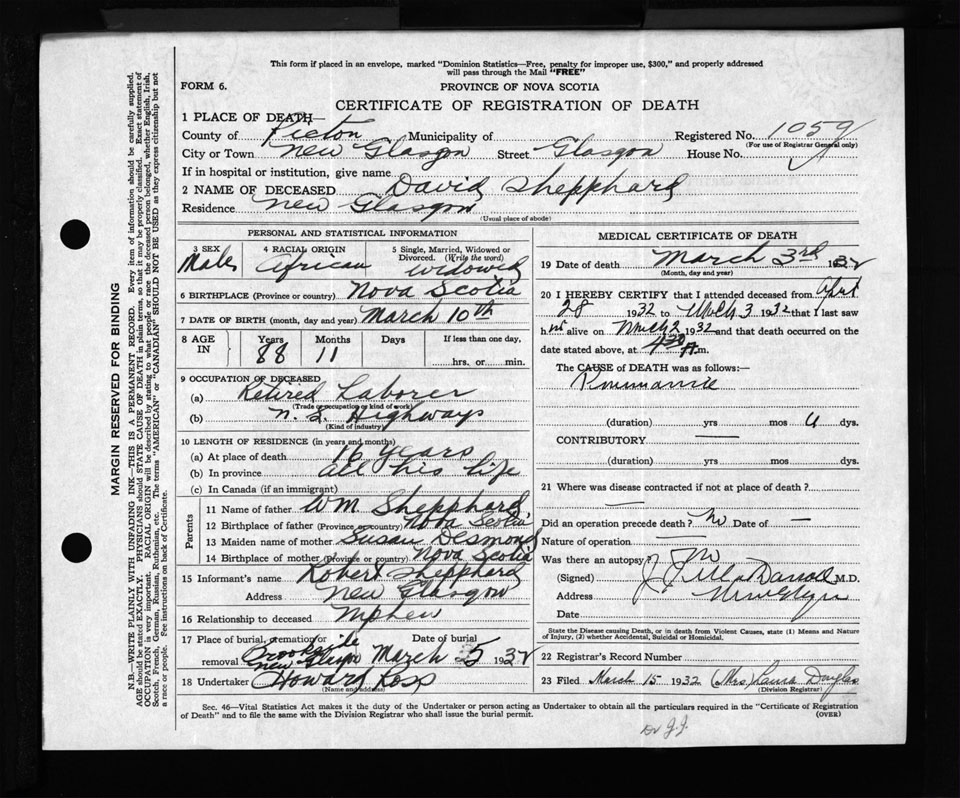 This form if placed in an envelope, marked "Dominion Statistics—Free, penalty for improper use, $300," and properly addressed
will pass through the Mail "FREE"
FORM 6.
PROVINCE OF NOVA SCOTIA
CERTIFICATE OF REGISTRATION OF DEATH
1 PLACE OF DEATH—
County of Pictou Municipality of Registered No. 1059
(For use of Registrar General only)
City or Town New Glasgow Street Glasgow House No.
If in hospital or institution, give name
2 NAME OF DECEASED David Shepphard
Residence New Glasgow
(Usual place of abode)
PERSONAL AND STATISTICAL INFORMATION
3 SEX 4 RACIAL ORIGIN 5 Single, Married, Widowed or Divorced. (Write the word)
Male African widowed
6 BIRTHPLACE (Province or country) Nova Scotia
7 DATE OF BIRTH (month, day and year) March 10th
8 AGE IN Years Months Days If less than one day,
88 11 hrs. or min.
9 OCCUPATION OF DECEASED
(a) Retired Laborer
(Trade or occupation or kind of work)
(b) N.S. Highways
(Kind of industry)
10 LENGTH OF RESIDENCE (in years and months)
(a) At place of death 16 years
(b) In province all his life
(c) In Canada (if an immigrant)
Parents
11 Name of father WM. Shepphard
12 Birthplace of father (Province or country) Nova Scotia
13 Maiden name of mother Susan Desmond
14 Birthplace of mother (Province or country) Nova Scotia
15 Informant's name Robert Shepphard
Address New Glasgow
16 Relationship to deceased nephew
17 Place of burial, cremation or removal Date of burial
New Glasgow March 5 1932
18 Undertaker Howard Ross
(Name and address)
MEDICAL CERTIFICATE OF DEATH
19 Date of death March 3rd 1932
(Month, day and year)
20 I HEREBY CERTIFY that I attended deceased from
28 1932 to March 3 1932 that I last saw
him alive on March 2 1932 and that death occurred on
date stated above, at 4 30 A.m.
The CAUSE of DEATH was as follows:—
(duration) yrs mos dys.
CONTRIBUTORY —
(duration) yrs mos dys.
21 Where was disease contracted if not at place of death?
—
Did an operation precede death? No Date of —
Nature of operation —
Was there an autopsy No
(Signed) M.D.
Address
Date
State the Disease causing Death, or in death from Violent Causes, state (1) Means and Nature
of Injury, (2) whether Accidental, Suicidal or Homicidal.
22 Registrar's Record Number
23 Filed March 15 1932 (Mrs) Laura Douglas
(Division Registrar)
Sec. 46—Vital Statistics Act makes it the duty of the Undertaker or person acting as Undertaker to obtain all the particulars required in the "Certificate of Registration
of Death" and to file the same with the Division Registrar who shall issue the burial permit.
(OVER)
MARGIN RESERVED FOR BINDING
N.B.—WRITE PLAINLY WITH UNFADING INK—THIS IS A PERMANENT RECORD. Every item of information should be carefully supplied.
AGE should be stated EXACTLY. PHYSICIANS should STATE CAUSE OF DEATH in plain terms, so that it may be properly classified. Exact statement of
OCCUPATION is very important. RACIAL ORIGIN will be described by stating to what people or race the deceased person belonged, whether English, Irish,
Scotch, French, German, Russian, Ruthenian, etc. The terms "AMERICAN" or "CANADIAN" SHOULD NOT BE USED as they express citizenship but not
a race or people. Fee instructions on back of Certificate.